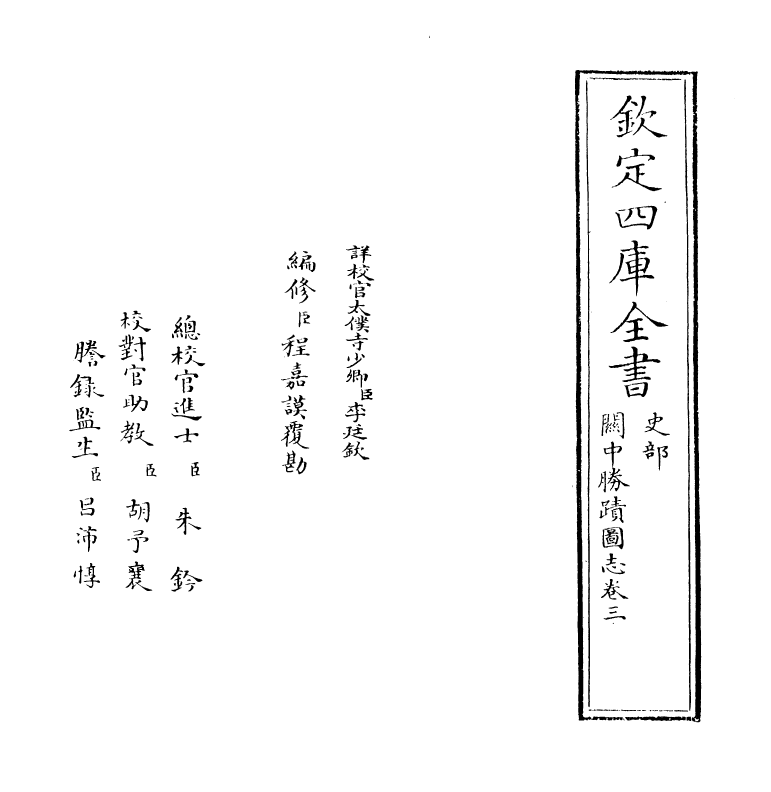 欽定四庫全書
史部
關中勝蹟圖志卷三
詳校官太僕寺少卿臣李廷欽
編修臣程嘉謨覆勘
總校官進士臣朱鈐
校對官助教臣胡予襄
謄錄監生臣呂沛惇